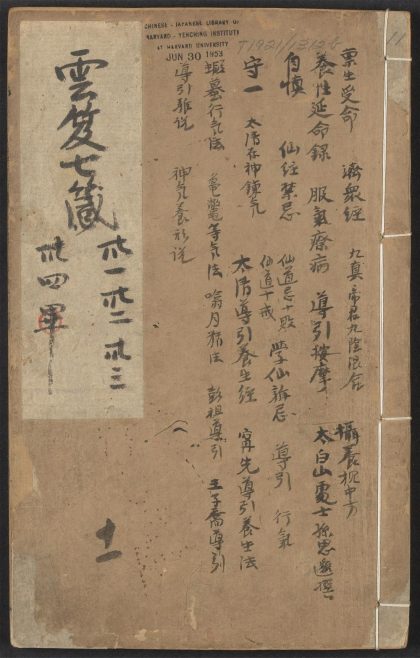 CHINESE - JAPANESE LIBRARY OF
HARVARD - YENCHING INSTITUTE
AT HARVARD UNIVERSITY
JUN 30 1953
稟生受命 濟衆經 九真帝君九陰混合 攝養枕中方
養性延命錄 服氣療病 導引按摩 太白山處士孫思邈撰
自慎 仙經禁忌 仙道忌十敗 仙道十戒 學仙雜忌 導引 行氣
守一 太清存神鍊氣 太清導引養生經 甯先導引養生法
蝦蟇行气法 龜鼈等气法 噏月精法 彭祖導引 王子喬導引
導引雜說 神气養形說
雲笈七籤
卅一卅二卅三
卅四
十一